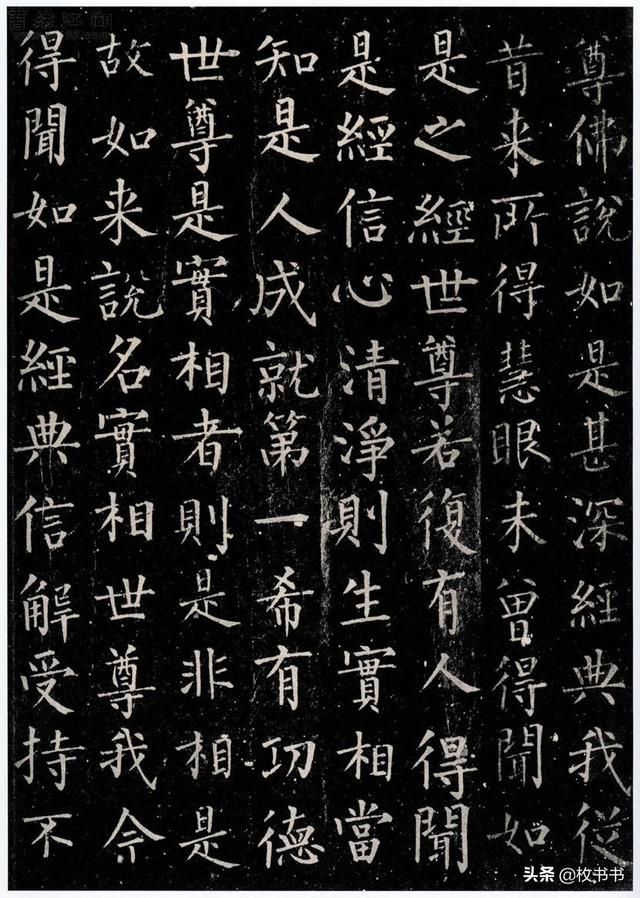 尊佛說如是甚深經典我從
昔来所得慧眼未曾得聞如
是之經世尊若復有人得聞
是經信心清淨則生實相當
知是人成就第一希有功德
世尊是實相者則是非相是
故如来說名實相世尊我今
得聞如是經典信解受持不
头条@枚书书